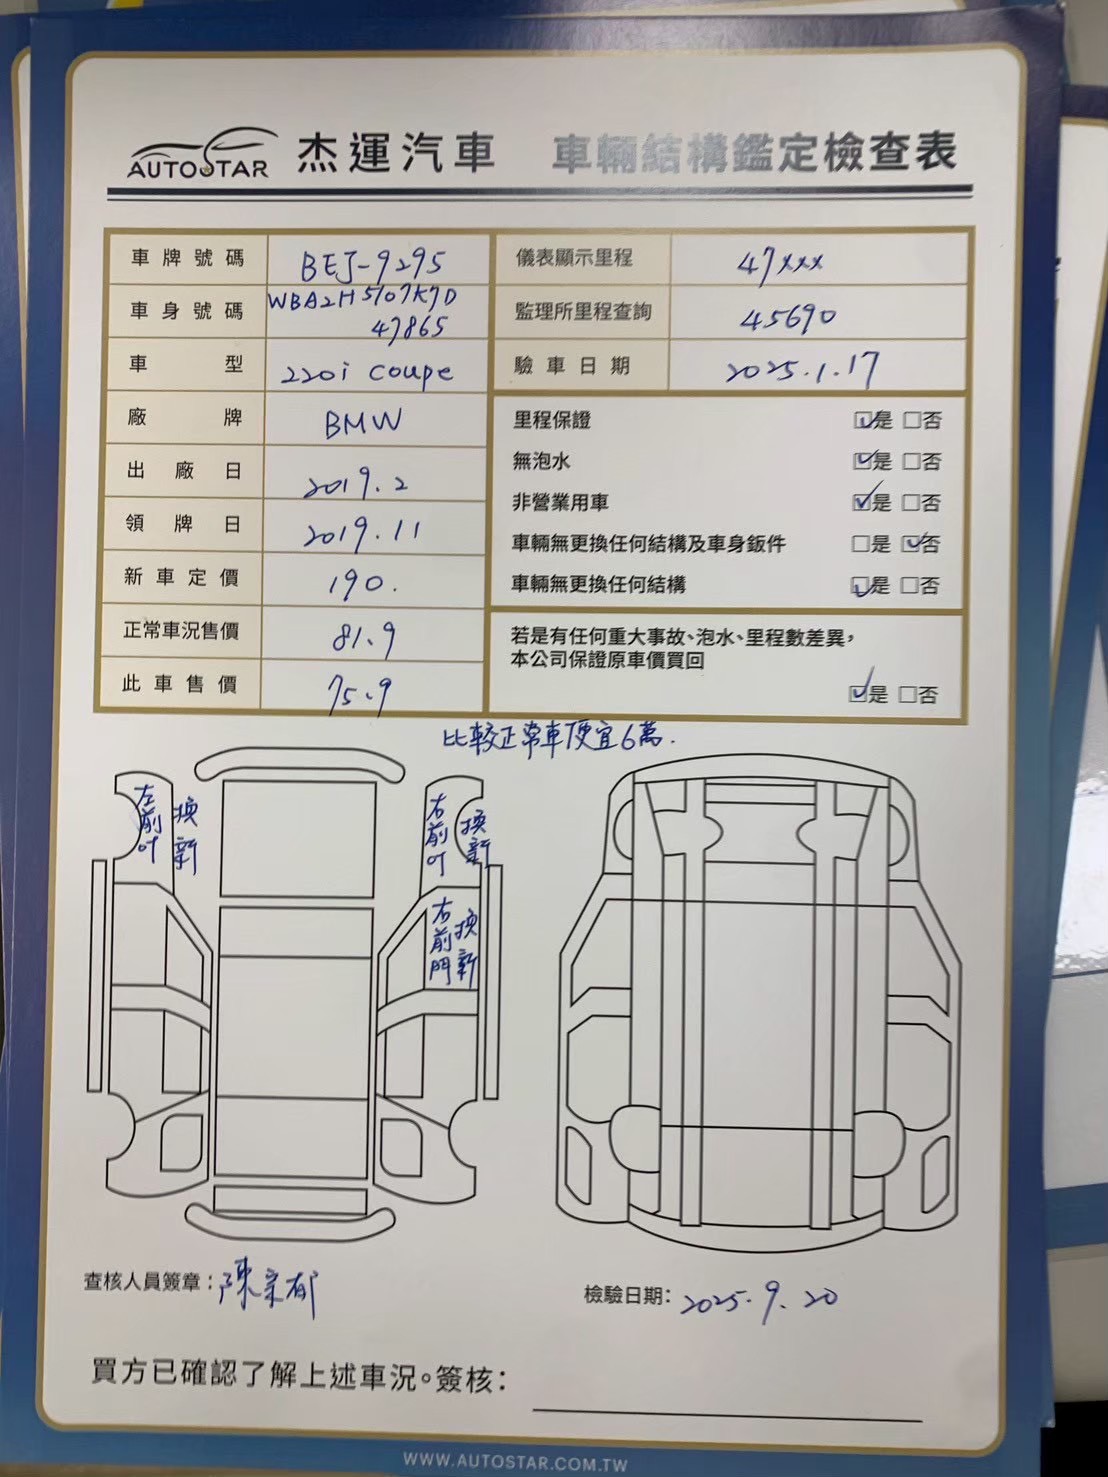 AUTOSTAR 杰運汽車 車輛結構鑑定檢查表
車牌號碼 BEJ-9295
車身號碼 WBA2H5107K7D
47865
車型 220i coupe
廠牌 BMW
出廠日 2019.2
領牌日 2019.11
新車定價 190.
正常車況售價 81.9
此車售價 75.9
儀表顯示里程 47xxx
監理所里程查詢 45690
驗車日期 2025.1.17
里程保證 ☑是 □否
無泡水 ☑是 □否
非營業用車 ☑是 □否
車輛無更換任何結構及車身鈑件 □是 ☑否
車輛無更換任何結構 ☑是 □否
若是有任何重大事故、泡水、里程數差異,
本公司保證原車價買回
☑是 □否
比較正常車便宜6萬.
左前叶
換新
右前叶
換新
右前門
換新
查核人員簽章:陳宗郁
檢驗日期: 2025.9.20
買方已確認了解上述車況。簽核:
WWW.AUTOSTAR.COM.TW